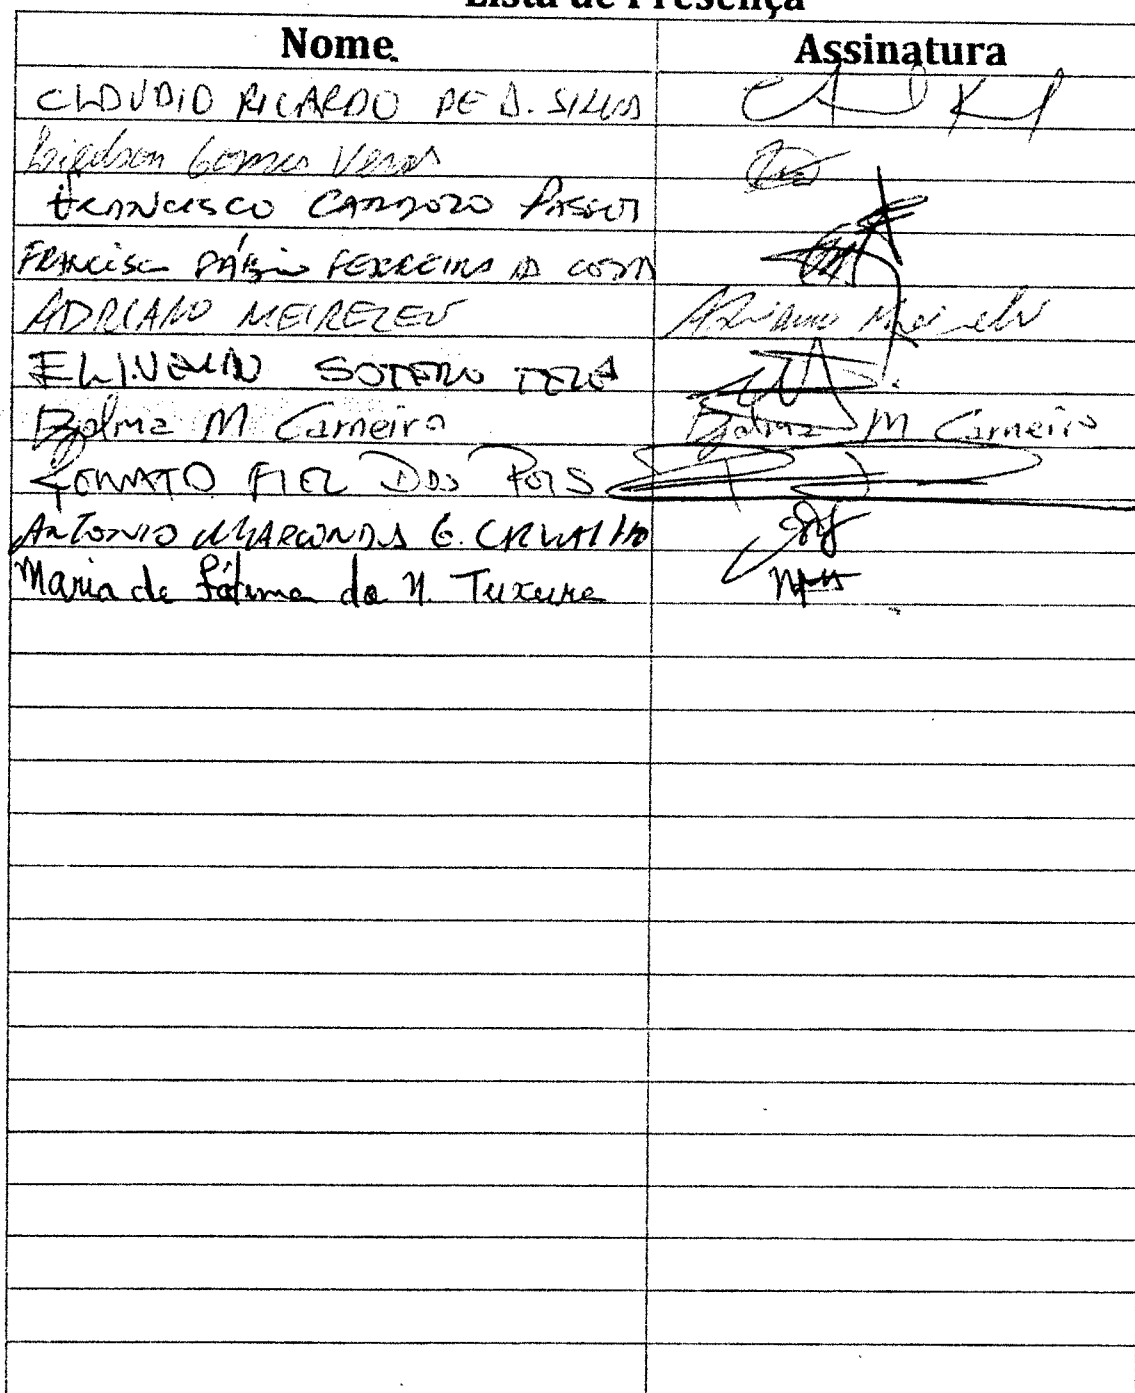 Lista de Presença
Nome. Assinatura
CLAUDIO RICARDO DE A. SILVA
Gomes Veras
FRANCISCO CARDOZO PASSOS
FRANCISCO FÁBIO FERREIRA DA COSTA
ADRIANO MEIRELES Adriano Meireles
SOTERO TELES
Djalma M Carneiro Djalma M Carneiro
FIEL DOS REIS
ANTONIO MARCONDES G. CARVALHO
Maria de Fátima do N. Teixeira